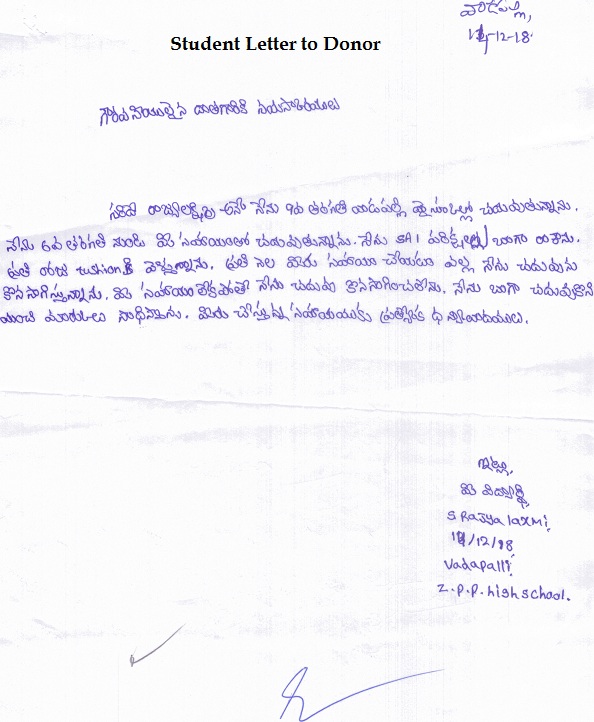 వాడపల్లి,
14-12-18.
Student Letter to Donor
గౌరవనీయులైన దాతగారికి నమస్కారములు
రాజ్యలక్ష్మి అనే నేను 9వ తరగతి వాడపల్లి హైస్కూల్లో చదువుతున్నాను.
నేను 6వ తరగతి నుండి మీ సహాయంతో చదువుతున్నాను. నేను SA1 పరీక్షలు బాగా రాశాను.
ప్రతి రోజు tushionకి వెళ్తున్నాను. ప్రతి నెల మీరు సహాయం చేయడం వల్ల నేను చదువును
కొనసాగిస్తున్నాను. మీ సహాయం లేకపోతే నేను చదువు కొనసాగించలేను. నేను బాగా చదువుకొని
మంచి మార్కులు సాధిస్తాను. మీరు చేస్తున్న సహాయముకు ప్రత్యేక ధన్యవాదములు.
ఇట్లు,
మీ విద్యార్థి,
S Rajya laxmi
14/12/18
Vadapalli
Z.P.P. high school.